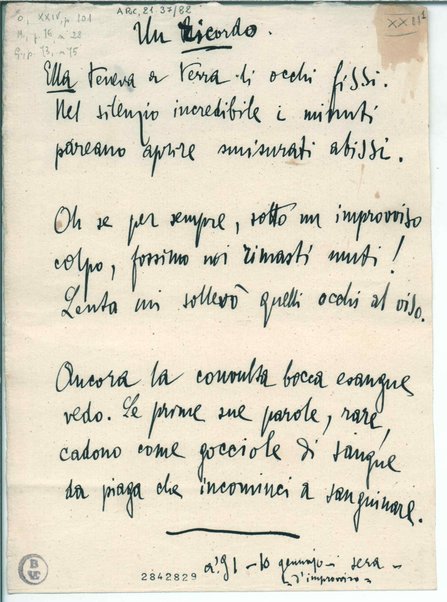 O, XXIV, p. 101
N, p 16 n 28
G, p. 73, n 75
ARC. 21 37/82
XXII²
Un Ricordo.
Ella teneva a terra li occhi fissi.
Nel silenzio incredibile i minuti
pareano aprire smisurati abissi.
Oh se per sempre, sotto un improvviso
colpo, fossimo noi rimasti muti!
Lenta mi sollevò quelli occhi al viso.
Ancora la convulsa bocca esangue
vedo. Le prime sue parole, rare,
cadono come gocciole di sangue
da piaga che incominci a sanguinare.
a' 91 - 10 gennajo - sera -
- d'improvviso -
2842829
B
VE